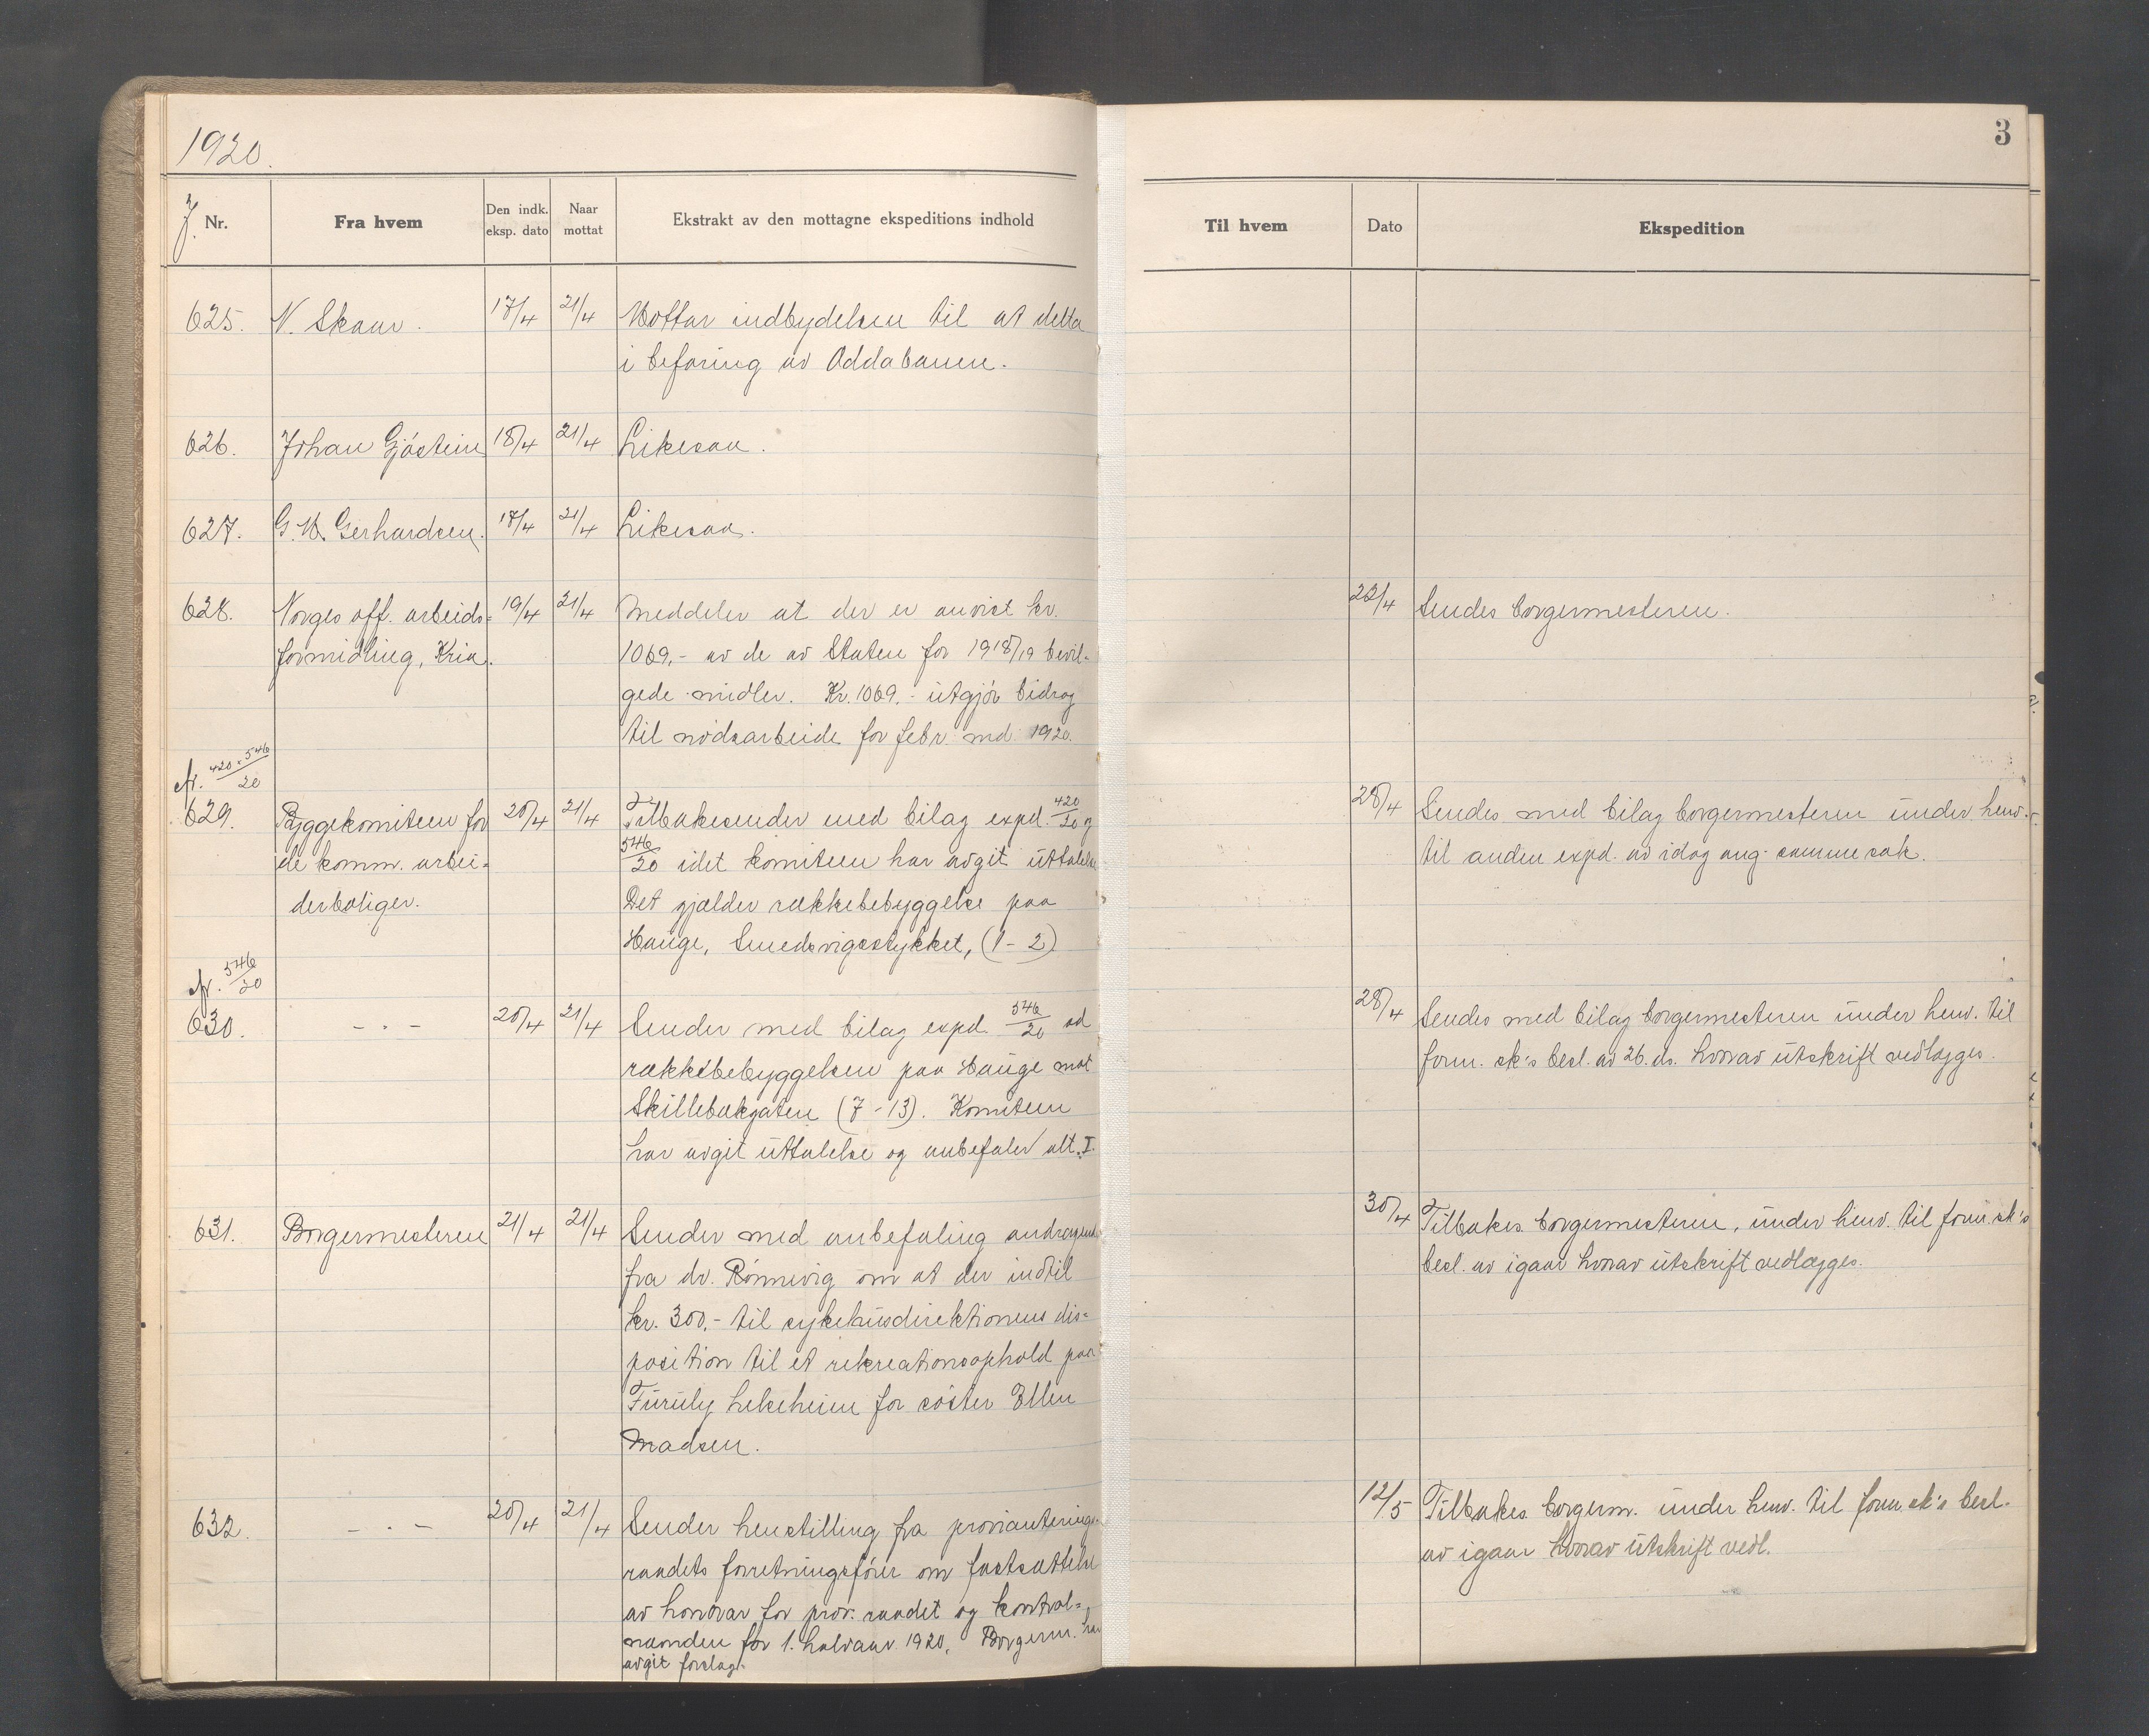 1920.
3
J. Nr.
Fra hvem
Den indk. eksp. dato
Naar mottat
Ekstrakt av den mottagne ekspeditions indhold
Til hvem
Dato
Ekspedition
625. N. Skaar. 17/4 21/4 Mottar indbydelsen til at delta
i befaring av Oddabanen.
626. Johan Gjöstein 18/4 21/4 Likesaa.
627. G. W. Gerhardsen. 17/4 21/4 Likesaa.
628. Norges off. arbeids= 19/4 21/4 Meddeler at der er anvist kr. 22/4 Sendes borgermesteren.
formidling, Kria. 1069,- av de av Staten for 1918/19 bevil-
gede midler. Kr. 1069,- utgjör bidrag
til nödsarbeide for febr. md. 1920.
cfr. 420 × 546/20
629. Byggekomiteen for 20/4 21/4 Tilbakesender med bilag expd. 420/20 og 28/4 Sendes med bilag borgermesteren under henv.
de komm. arbei= 546/20 idet komiteen har avgit uttalelse til anden expd. av idag ang. samme sak.
derboliger. Det gjælder rækkebebyggelse paa
Hauge, Smedsvigsstykket, (1-2)
cfr. 546/20
630. - " - 20/4 21/4 Sender med bilag expd. 546/20 ad 28/4 Sendes med bilag borgermesteren under henv. til
rækkebebyggelsen paa Hauge mot form. sk's besl. av 26. ds. hvorav utskrift vedlægges.
Skillebækgaten (7-13). Komiteen
har avgit uttalelse og anbefaler alt. I.
631. Borgermesteren 21/4 21/4 Sender med anbefaling andragende 30/4 Tilbakes. borgermesteren, under henv. til form. sk's
fra dr. Rönnevig om at der indtil besl. av igaar hvorav utskrift vedlægges.
kr. 300,- til sykehusdirektionens dis=
position til et rekreationsophold paa
Furuly hvilehjem for söster Ellen
Madsen.
632. - " - 20/4 21/4 Sender henstilling fra provianterings- 12/5 Tilbakes. borgerm. under henv. til form sk's besl.
raadets forretningsförer om fastsættelse av igaar hvorav utskrift vedl.
av honorar for prov. raadet og kontrol=
nemnden for 1. halvaar 1920. Borgerm. har
avgit forslag.